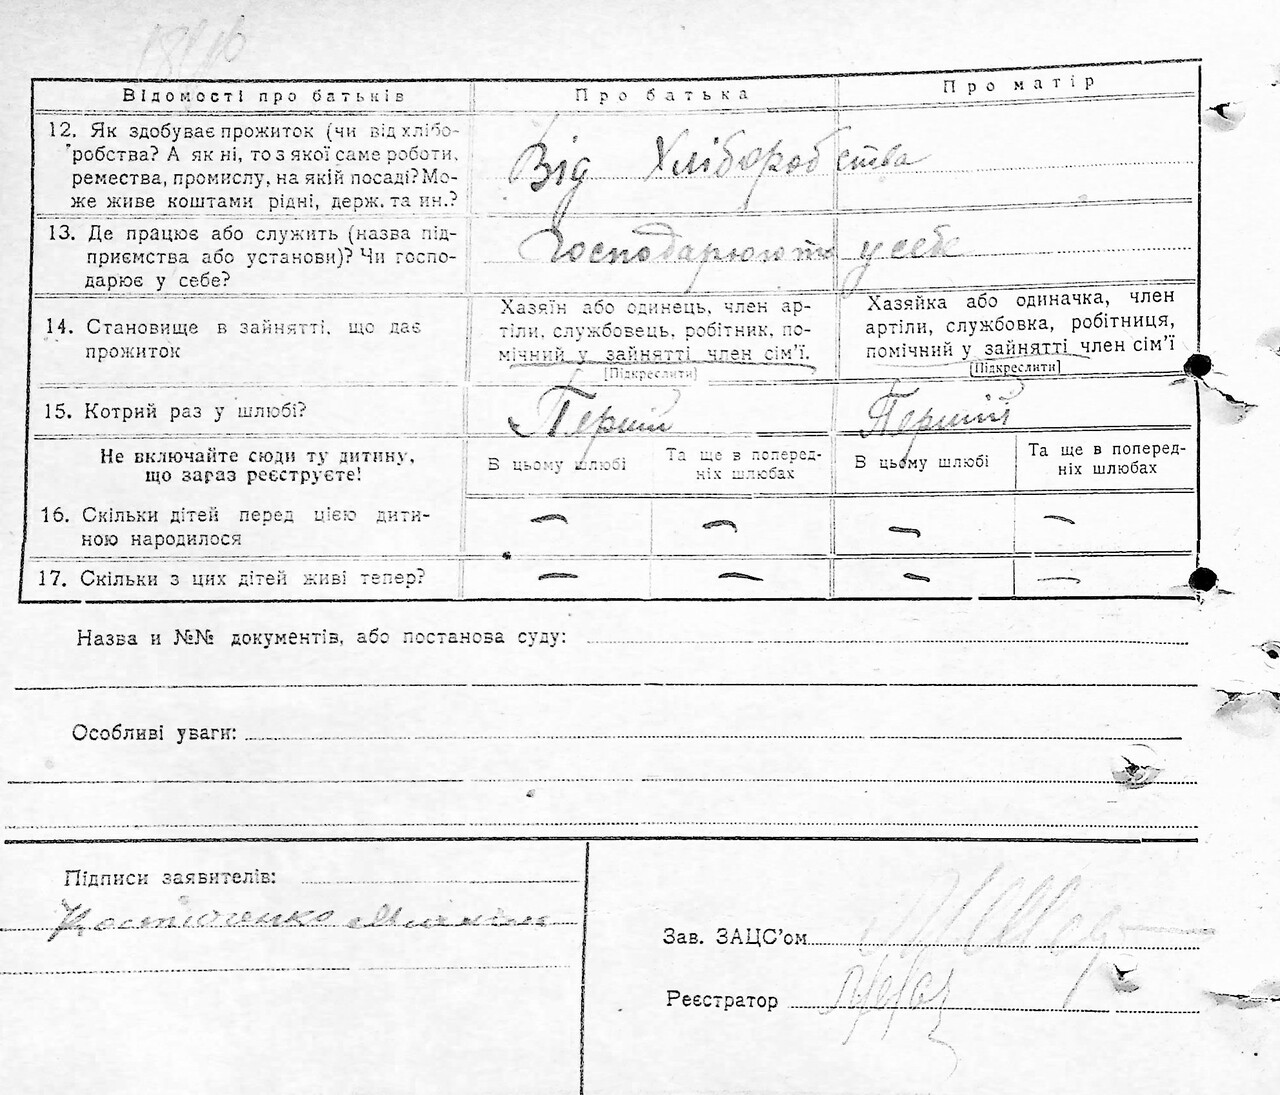 Відомості про батьків
Про батька
Про матір
12. Як здобуває прожиток (чи від хлібо-
робства? А як ні, то з якої саме роботи,
ремества, промислу, на якій посаді? Мо-
же живе коштами рідні, держ. та ин.?
Від Хліборобства
13. Де працює або служить (назва під-
приємства або установи)? Чи госпо-
дарює у себе?
Господарюють у себе
14. Становище в зайнятті, що дає
прожиток
Хазяїн або одинець, член ар-
тіли, службовець, робітник, по-
мічний у зайнятті член сім'ї.
[Підкреслити]
Хазяйка або одиначка, член
артіли, службовка, робітниця,
помічний у зайнятті член сім'ї
[Підкреслити]
15. Котрий раз у шлюбі?
Перший
Перший
Не включайте сюди ту дитину,
що зараз реєструєте!
В цьому шлюбі
Та ще в поперед-
ніх шлюбах
В цьому шлюбі
Та ще в поперед-
ніх шлюбах
16. Скільки дітей перед цією дити-
ною народилося
— — — —
17. Скільки з цих дітей живі тепер?
— — — —
Назва и №№ документів, або постанова суду:
Особливі уваги:
Підписи заявителів:
Зав. ЗАЦС'ом
Реєстратор